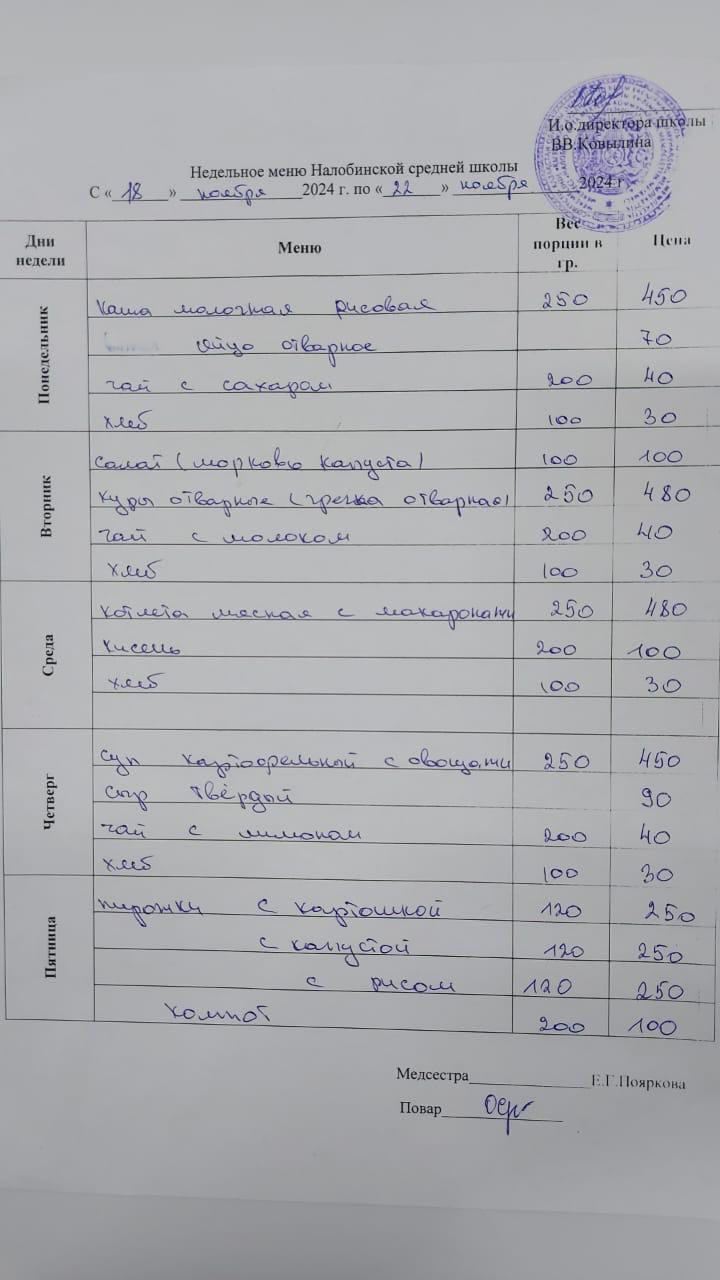 И.о.директора школы
В.В.Ковылина
Недельное меню Налобинской средней школы
С « 18 » ноября 2024 г. по « 22 » ноября 2024 г
Дни недели Меню Вес порции в гр. Цена
Понедельник
Каша молочная рисовая 250 450
яйцо отварное 70
чай с сахаром 200 40
хлеб 100 30
Вторник
Салат (морковью капуста) 100 100
Куры отварные (гречка отварная) 250 480
чай с молоком 200 40
хлеб 100 30
Среда
Котлета мясная с макаронами 250 480
Кисель 200 100
хлеб 100 30
Четверг
Суп картофельный с овощами 250 450
Сыр твёрдый 90
чай с лимоном 200 40
хлеб 100 30
Пятница
пирожки с картошкой 120 250
с капустой 120 250
с рисом 120 250
Компот 200 100
Медсестра Е.Г.Пояркова
Повар